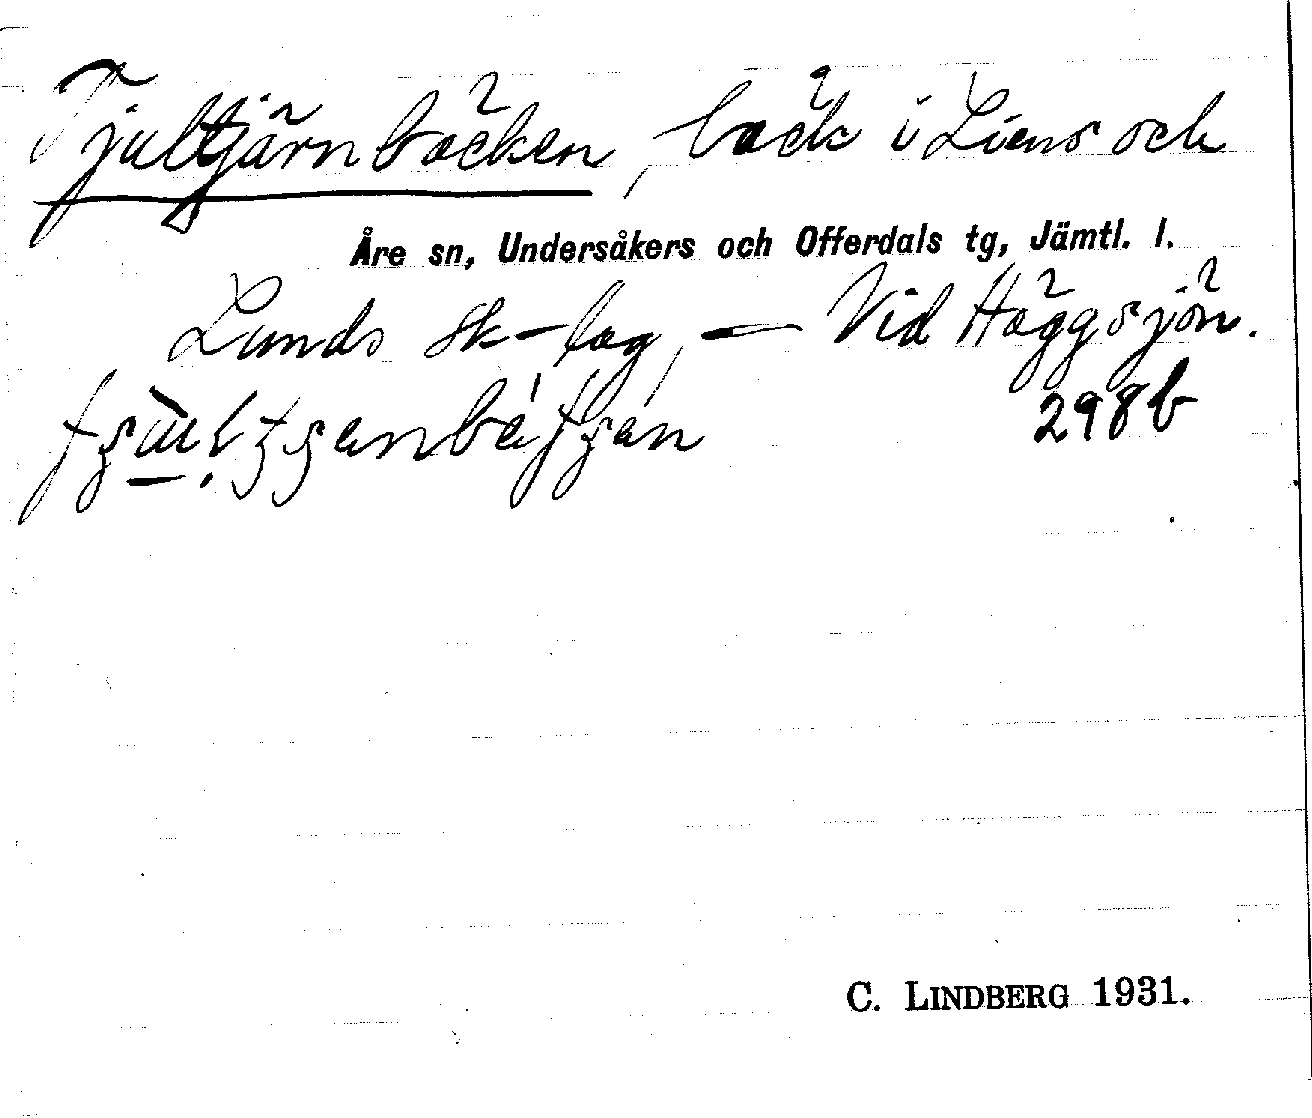 Tjultjärnbäcken, bäck i Liens och
Åre sn, Undersåkers och Offerdals tg, Jämtl. l.
Lunds sk-lag, – Vid Häggsjön.
298b
C. LINDBERG 1931.